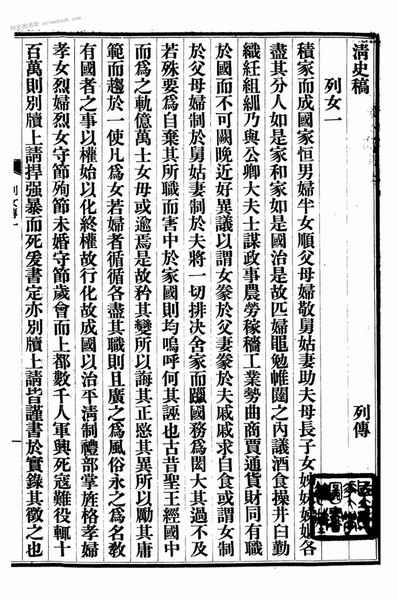 清史稿
列女一　列傳
積家而成國家恒男婦半女順父母婦敬舅姑妻助夫母長子女姊妹娣姒各
盡其分人如是家和家如是國治是故匹婦黽勉帷闥之內議酒食操井臼勤
織紝組紃乃與公卿大夫士謀政事農勞稼穡工業勢曲商賈通貨財同有職
於國而不可闕晚近好異議以謂女豢於父妻豢於夫戚戚求自食或謂女制
於父母婦制於舅姑妻制於夫將一切排決舍家而躐國務為閎大其過不及
若殊要為自棄其所職而害中於家國則均嗚呼何其誣也古昔聖王經國中
而為之軌億萬士女毋或逾焉是故矜其變所以誨其正愍其異所以勵其庸
範而趨於一使凡為女若婦者循循各盡其職則且廣之為風俗永之為名教
有國者之事以權始以化終權故行化故成國以治平清制禮部掌旌格孝婦
孝女烈婦烈女守節殉節未婚守節歲會而上都數千人軍興死寇難役輒十
百萬則別牘上請捍强暴而死爰書定亦別牘上請皆謹書於實錄其徵之也
列女傳一